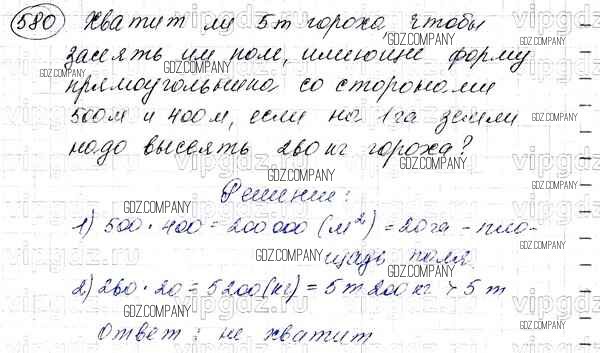 580 Хватит ли 5т гороха, чтобы
засеять им поле, имеющие форму
прямоугольника со сторонами
500м и 400м, если на 1га земли
надо высеять 260кг гороха?
Решение:
1) 500 · 400 = 200000 (м²) = 20га - пло-
щадь поля
2) 260 · 20 = 5200 (кг) = 5т 200кг > 5т
Ответ: не хватит
GDZ.COMPANY
vipgdz.ru